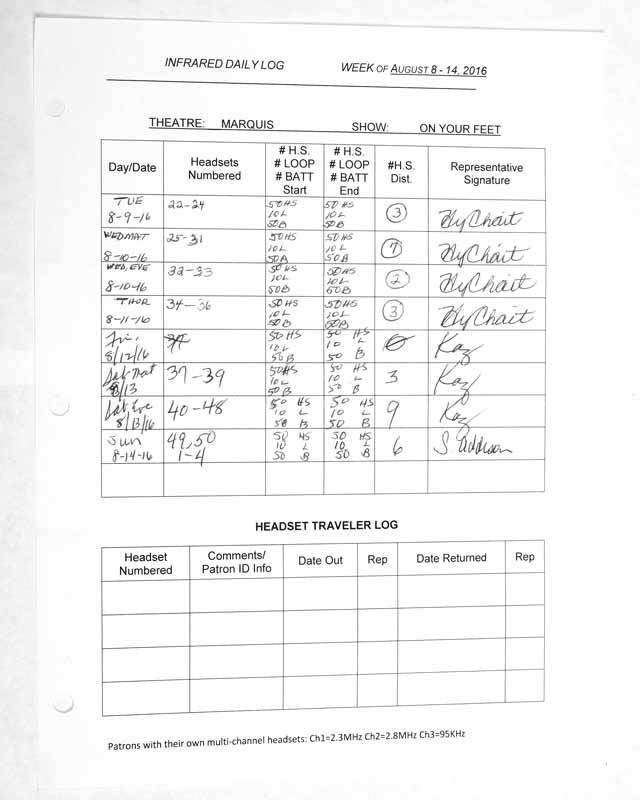 INFRARED DAILY LOG WEEK OF AUGUST 8 - 14, 2016
THEATRE: MARQUIS SHOW: ON YOUR FEET
Day/Date Headsets Numbered # H.S. # LOOP # BATT Start # H.S. # LOOP # BATT End #H.S. Dist. Representative Signature
TUE 8-9-16 22-24 50 HS 10 L 50 B 50 HS 10 L 50 B 3
WED MAT 8-10-16 25-31 50 HS 10 L 50 B 50 HS 10 L 50 B 7
WED, EVE 8-10-16 32-33 50 HS 10 L 50 B 50 HS 10 L 50 B 2
THUR 8-11-16 34-36 50 HS 10 L 50 B 50 HS 10 L 50 B 3
Fri. 8/12/16 50 HS 10 L 50 B 50 HS 10 L 50 B 0 Kaz
Sat Mat 8/13 37-39 50 HS 10 L 50 B 50 HS 10 L 50 B 3 Kaz
Sat Eve 8/13/16 40-48 50 HS 10 L 50 B 50 HS 10 L 50 B 9 Kaz
Sun 8-14-16 49,50 1-4 50 HS 10 L 50 B 50 HS 10 L 50 B 6 S. Addison
HEADSET TRAVELER LOG
Headset Numbered Comments/ Patron ID Info Date Out Rep Date Returned Rep
Patrons with their own multi-channel headsets: Ch1=2.3MHz Ch2=2.8MHz Ch3=95KHz